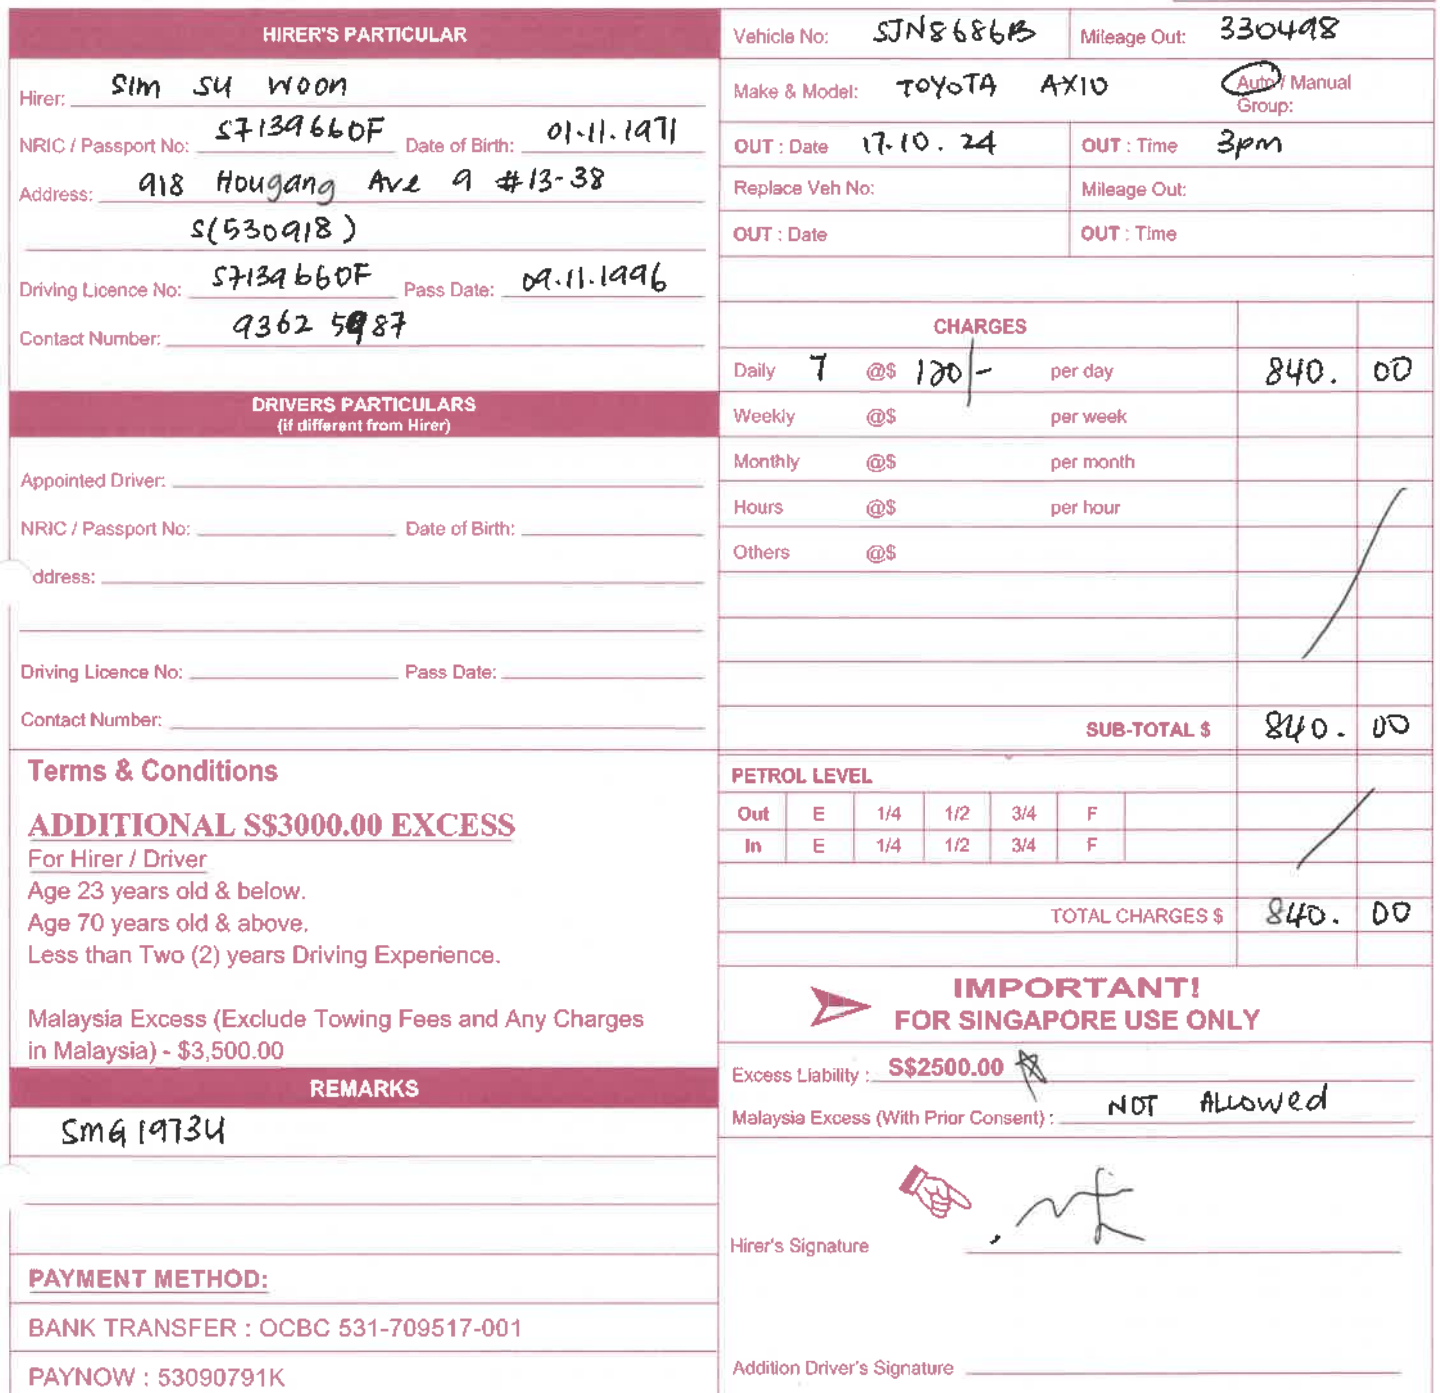 HIRER'S PARTICULAR
Hirer: SIM SU WOON
NRIC / Passport No: S7139660F Date of Birth: 01.11.1971
Address: 918 Hougang Ave 9 #13-38
S(530918)
Driving Licence No: S7139660F Pass Date: 09.11.1996
Contact Number: 9362 5987
DRIVERS PARTICULARS
(if different from Hirer)
Appointed Driver:
NRIC / Passport No: Date of Birth:
ddress:
Driving Licence No: Pass Date:
Contact Number:
Terms & Conditions
ADDITIONAL S$3000.00 EXCESS
For Hirer / Driver
Age 23 years old & below.
Age 70 years old & above.
Less than Two (2) years Driving Experience.
Malaysia Excess (Exclude Towing Fees and Any Charges
in Malaysia) - $3,500.00
REMARKS
SMG1973U
PAYMENT METHOD:
BANK TRANSFER : OCBC 531-709517-001
PAYNOW : 53090791K
Vehicle No: SJN8686B Mileage Out: 330498
Make & Model: TOYOTA AXIO Auto / Manual
Group:
OUT : Date 17.10.24 OUT : Time 3pm
Replace Veh No: Mileage Out:
OUT : Date OUT : Time
CHARGES
Daily 7 @$ 120/- per day 840. 00
Weekly @$ per week
Monthly @$ per month
Hours @$ per hour
Others @$
SUB-TOTAL $ 840. 00
PETROL LEVEL
Out E 1/4 1/2 3/4 F
In E 1/4 1/2 3/4 F
TOTAL CHARGES $ 840. 00
IMPORTANT!
FOR SINGAPORE USE ONLY
Excess Liability : S$2500.00
Malaysia Excess (With Prior Consent) : NOT ALLOWED
Hirer's Signature
Addition Driver's Signature